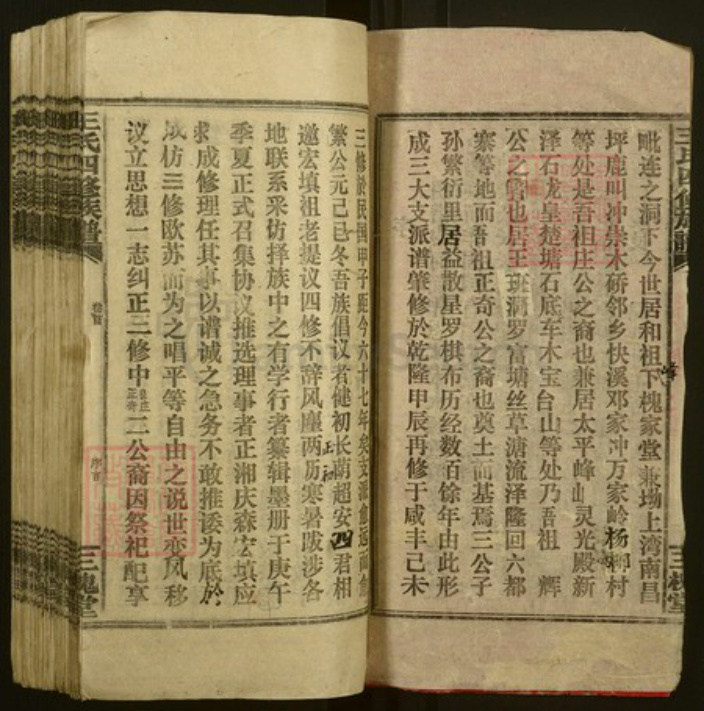 毗连之洞下今世居和祖下槐家堂兼坳上湾南昌
坪鹿叫冲崇木硚邻乡快溪邓家冲万家岭杨柳村
等处是吾祖庄公之裔也兼居太平峰山灵光殿新
泽石龙皇楚塘石底车木宝台山等处乃吾祖 辉
公之裔也居王斑洞罗富塘丝草溏流泽隆回六都
寨等地而吾祖正奇公之裔也奠土而基焉三公子
孙繁衍里居益散星罗棋布历经数百馀年由此形
成三大支派谱肇修於乾隆甲辰再修于咸丰己未
三修於民国甲子距今六十七年矣支派愈远而愈
繁公元己巳冬吾族倡议者健初长南超安四君相
邀宏填祖老提议四修不辞风廛两历寒暑跋涉各
地联系采访择族中之有学行者纂辑墨册于庚午
季夏正式召集协议推选理事者正湘庆森宏填应
求成修理任其事以谱诚之急务不敢推诿为底於
成仿三修欧苏而为之唱平等自由之说世变风移
议立思想一志纠正三修中二公裔因祭祀配享
王氏四修族谱
卷首
序首
三槐堂
王氏四修族谱
三槐堂